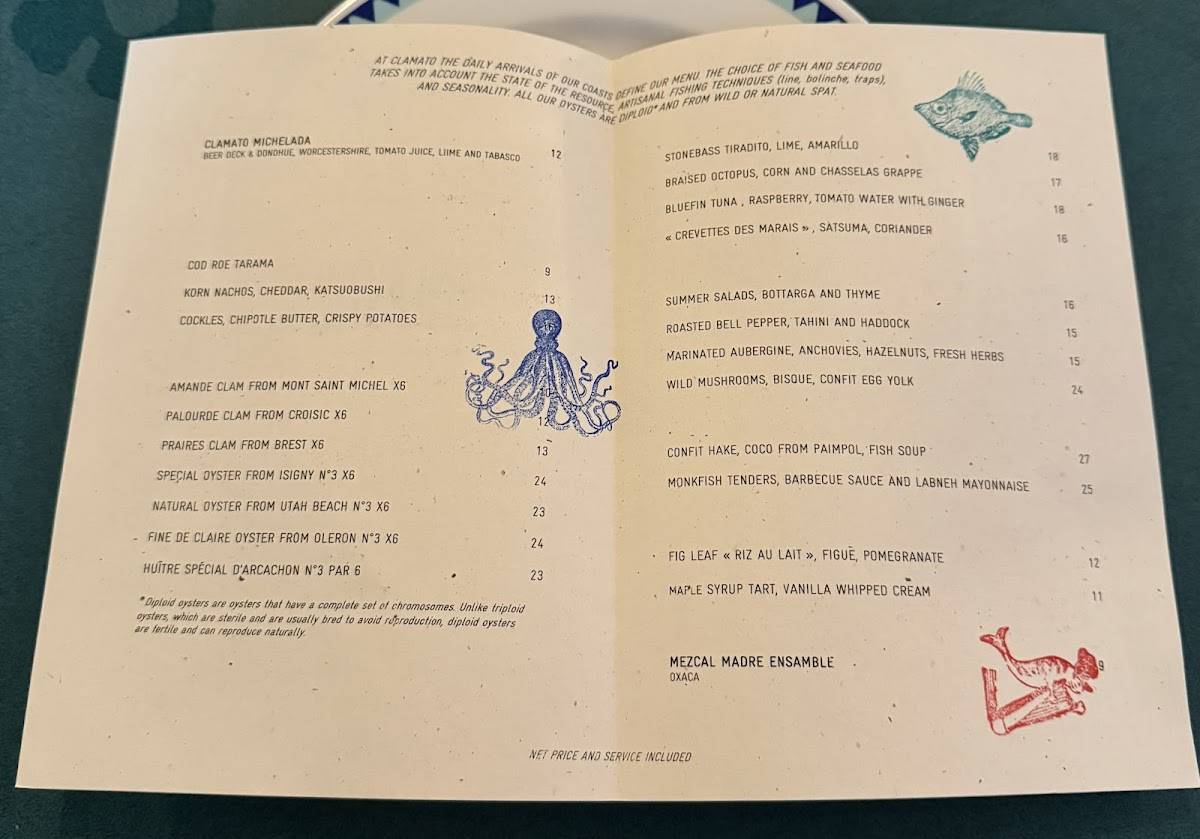 AT CLAMATO THE DAILY ARRIVALS OF OUR COASTS DEFINE OUR MENU. THE CHOICE OF FISH AND SEAFOOD
TAKES INTO ACCOUNT THE STATE OF THE RESOURCE, ARTISANAL FISHING TECHNIQUES (line, bolinche, traps),
AND SEASONALITY. ALL OUR OYSTERS ARE DIPLOID* AND FROM WILD OR NATURAL SPAT.
CLAMATO MICHELADA 12
BEER DECK & DONOHUE, WORCESTERSHIRE, TOMATO JUICE, LIIME AND TABASCO
COD ROE TARAMA 9
KORN NACHOS, CHEDDAR, KATSUOBUSHI 13
COCKLES, CHIPOTLE BUTTER, CRISPY POTATOES
AMANDE CLAM FROM MONT SAINT MICHEL X6
PALOURDE CLAM FROM CROISIC X6 12
PRAIRES CLAM FROM BREST X6 13
SPECIAL OYSTER FROM ISIGNY N°3 X6 24
NATURAL OYSTER FROM UTAH BEACH N°3 X6 23
FINE DE CLAIRE OYSTER FROM OLERON N°3 X6 24
HUÎTRE SPÉCIAL D'ARCACHON N°3 PAR 6 23
*Diploid oysters are oysters that have a complete set of chromosomes. Unlike triploid
oysters, which are sterile and are usually bred to avoid reproduction, diploid oysters
are fertile and can reproduce naturally.
STONEBASS TIRADITO, LIME, AMARILLO 18
BRAISED OCTOPUS, CORN AND CHASSELAS GRAPPE 17
BLUEFIN TUNA , RASPBERRY, TOMATO WATER WITH GINGER 18
« CREVETTES DES MARAIS » , SATSUMA, CORIANDER 16
SUMMER SALADS, BOTTARGA AND THYME 16
ROASTED BELL PEPPER, TAHINI AND HADDOCK 15
MARINATED AUBERGINE, ANCHOVIES, HAZELNUTS, FRESH HERBS 15
WILD MUSHROOMS, BISQUE, CONFIT EGG YOLK 24
CONFIT HAKE, COCO FROM PAIMPOL, FISH SOUP 27
MONKFISH TENDERS, BARBECUE SAUCE AND LABNEH MAYONNAISE 25
FIG LEAF « RIZ AU LAIT », FIGUE, POMEGRANATE 12
MAPLE SYRUP TART, VANILLA WHIPPED CREAM 11
MEZCAL MADRE ENSAMBLE 9
OXACA
NET PRICE AND SERVICE INCLUDED